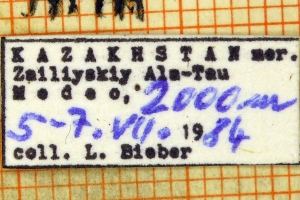 KAZAKHSTAN mer.
Zailiyskiy Ala-Tau
Medeo, 2000m
5-7.VII.1984
coll. L. Bieber